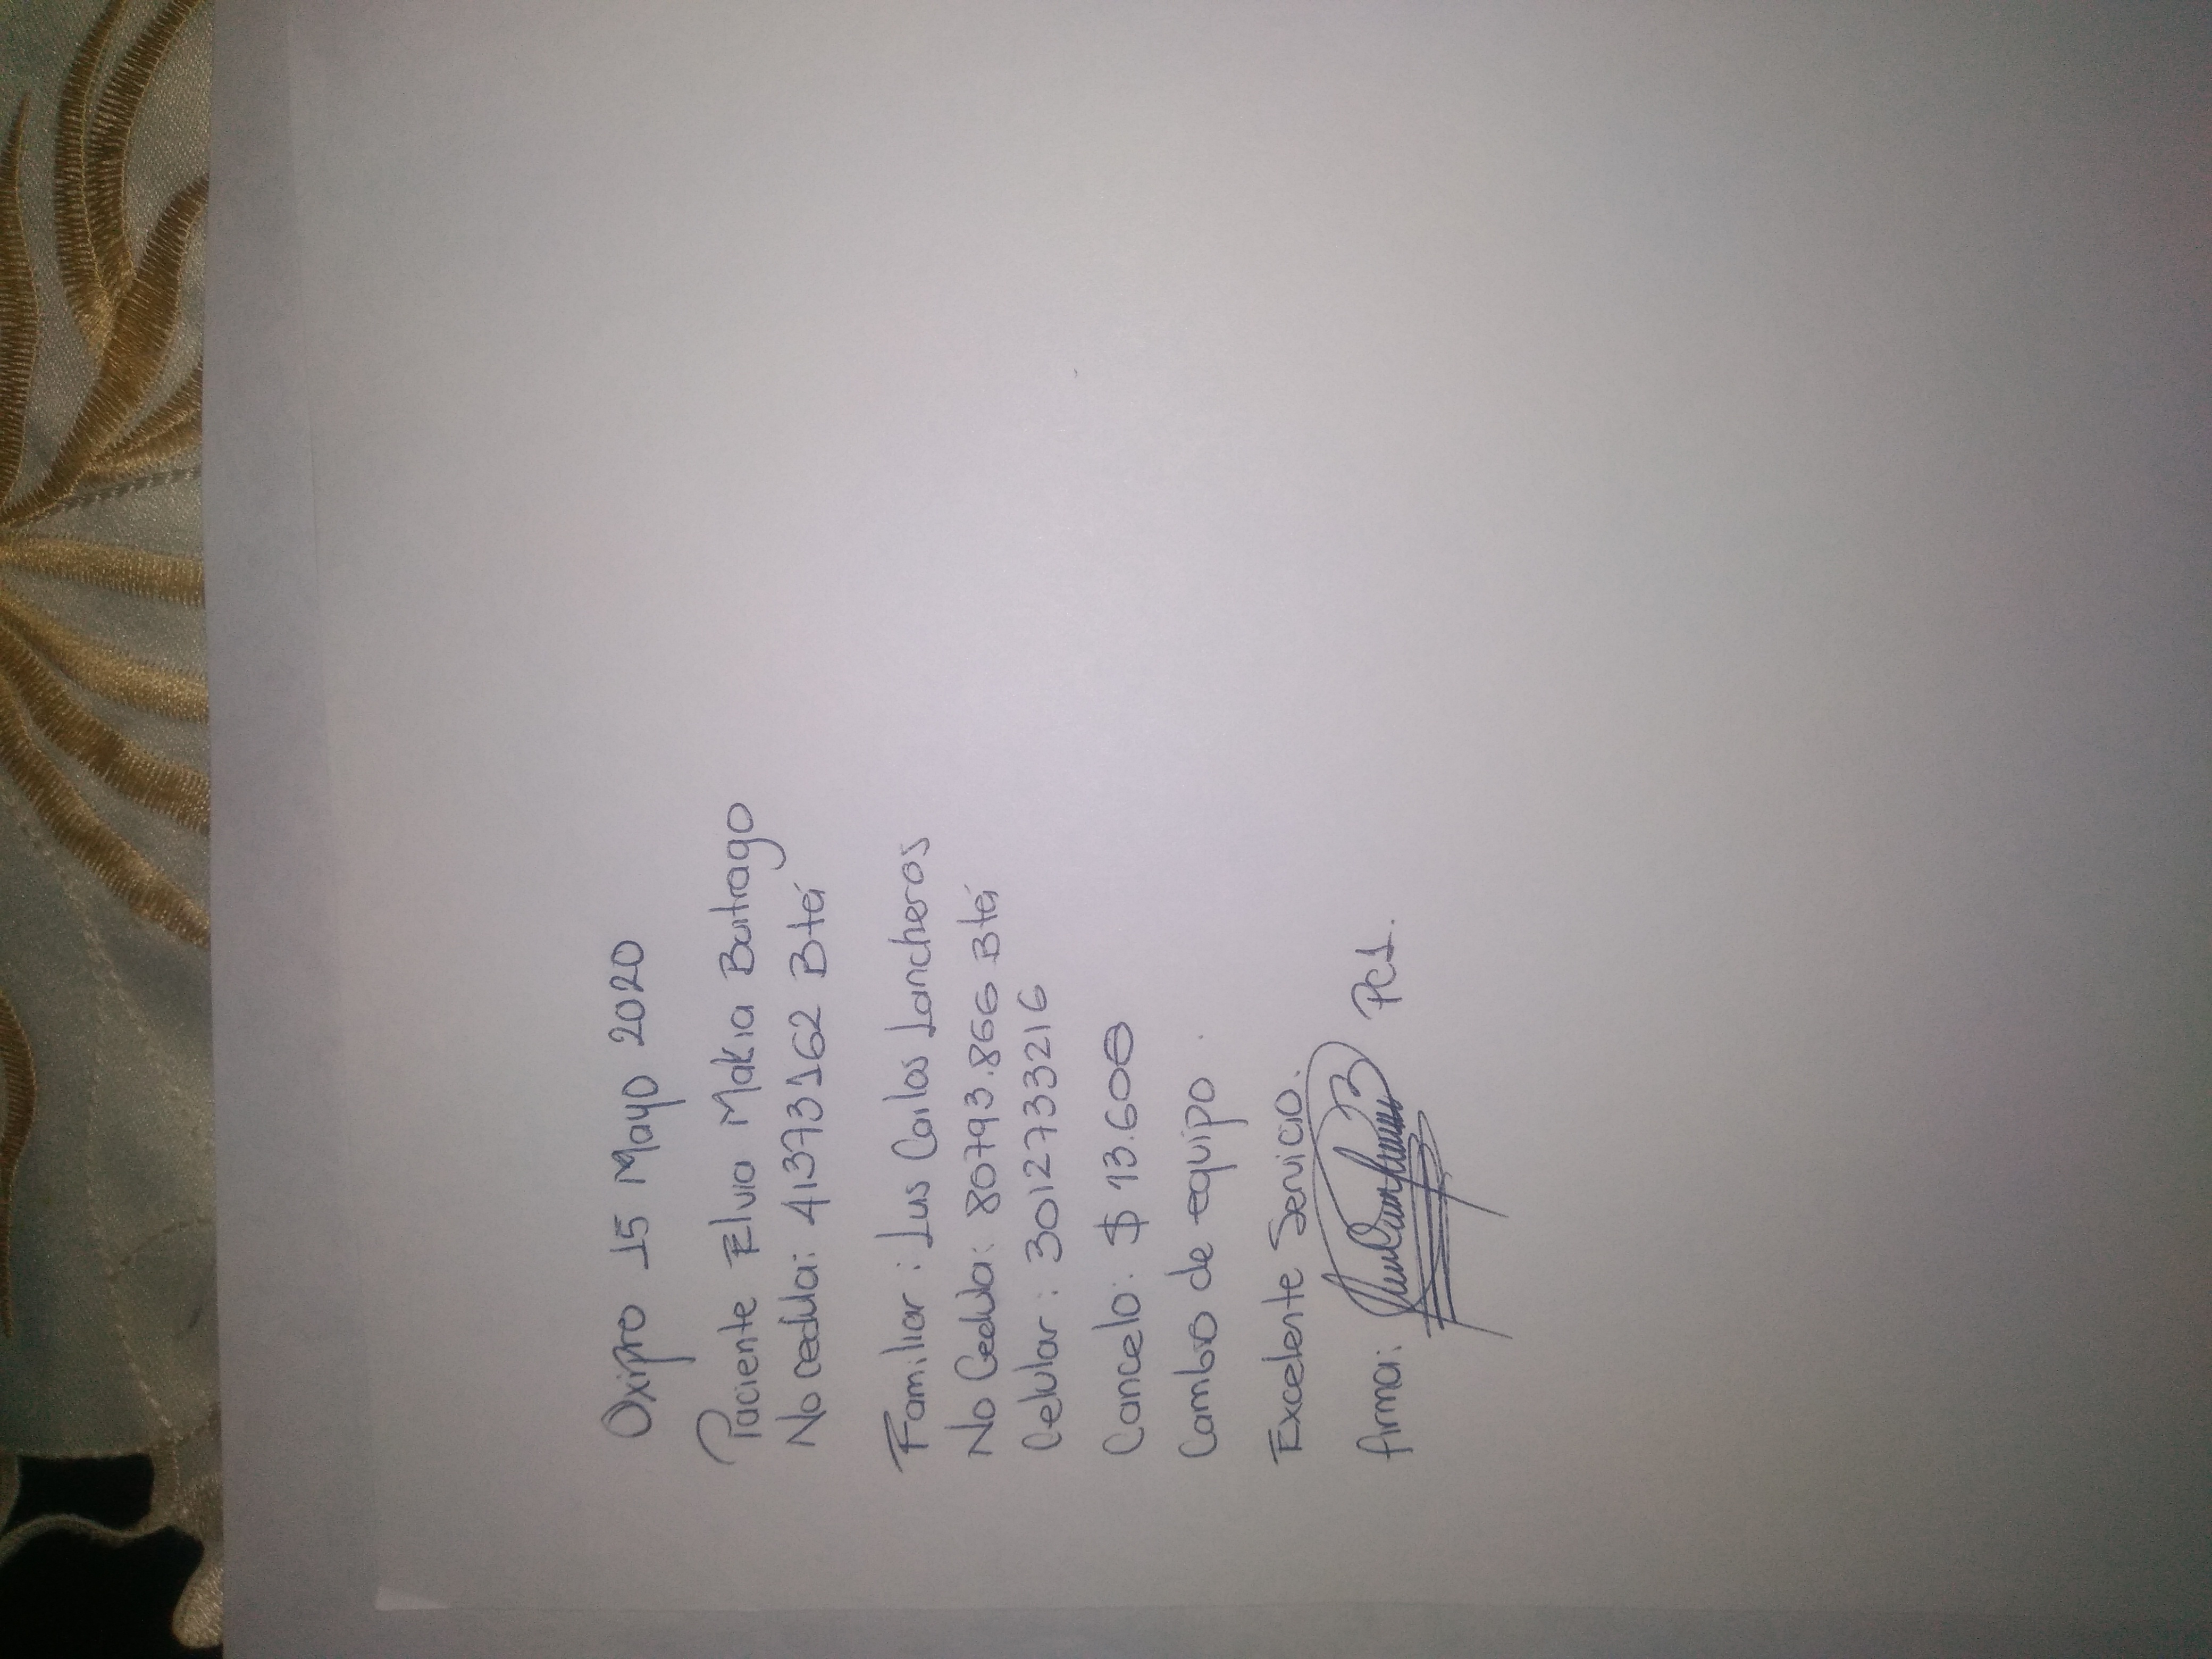 Oxipro 15 Mayo 2020
Paciente Elvia Maria Buitrago
No cedula: 41373162 Btá
Familiar: Luis Carlos Lancheros
No Cedula: 80793.866 Btá
Celular: 3012733216
Cancelo: $13.600
Cambio de equipo.
Excelente Servicio.
firma: